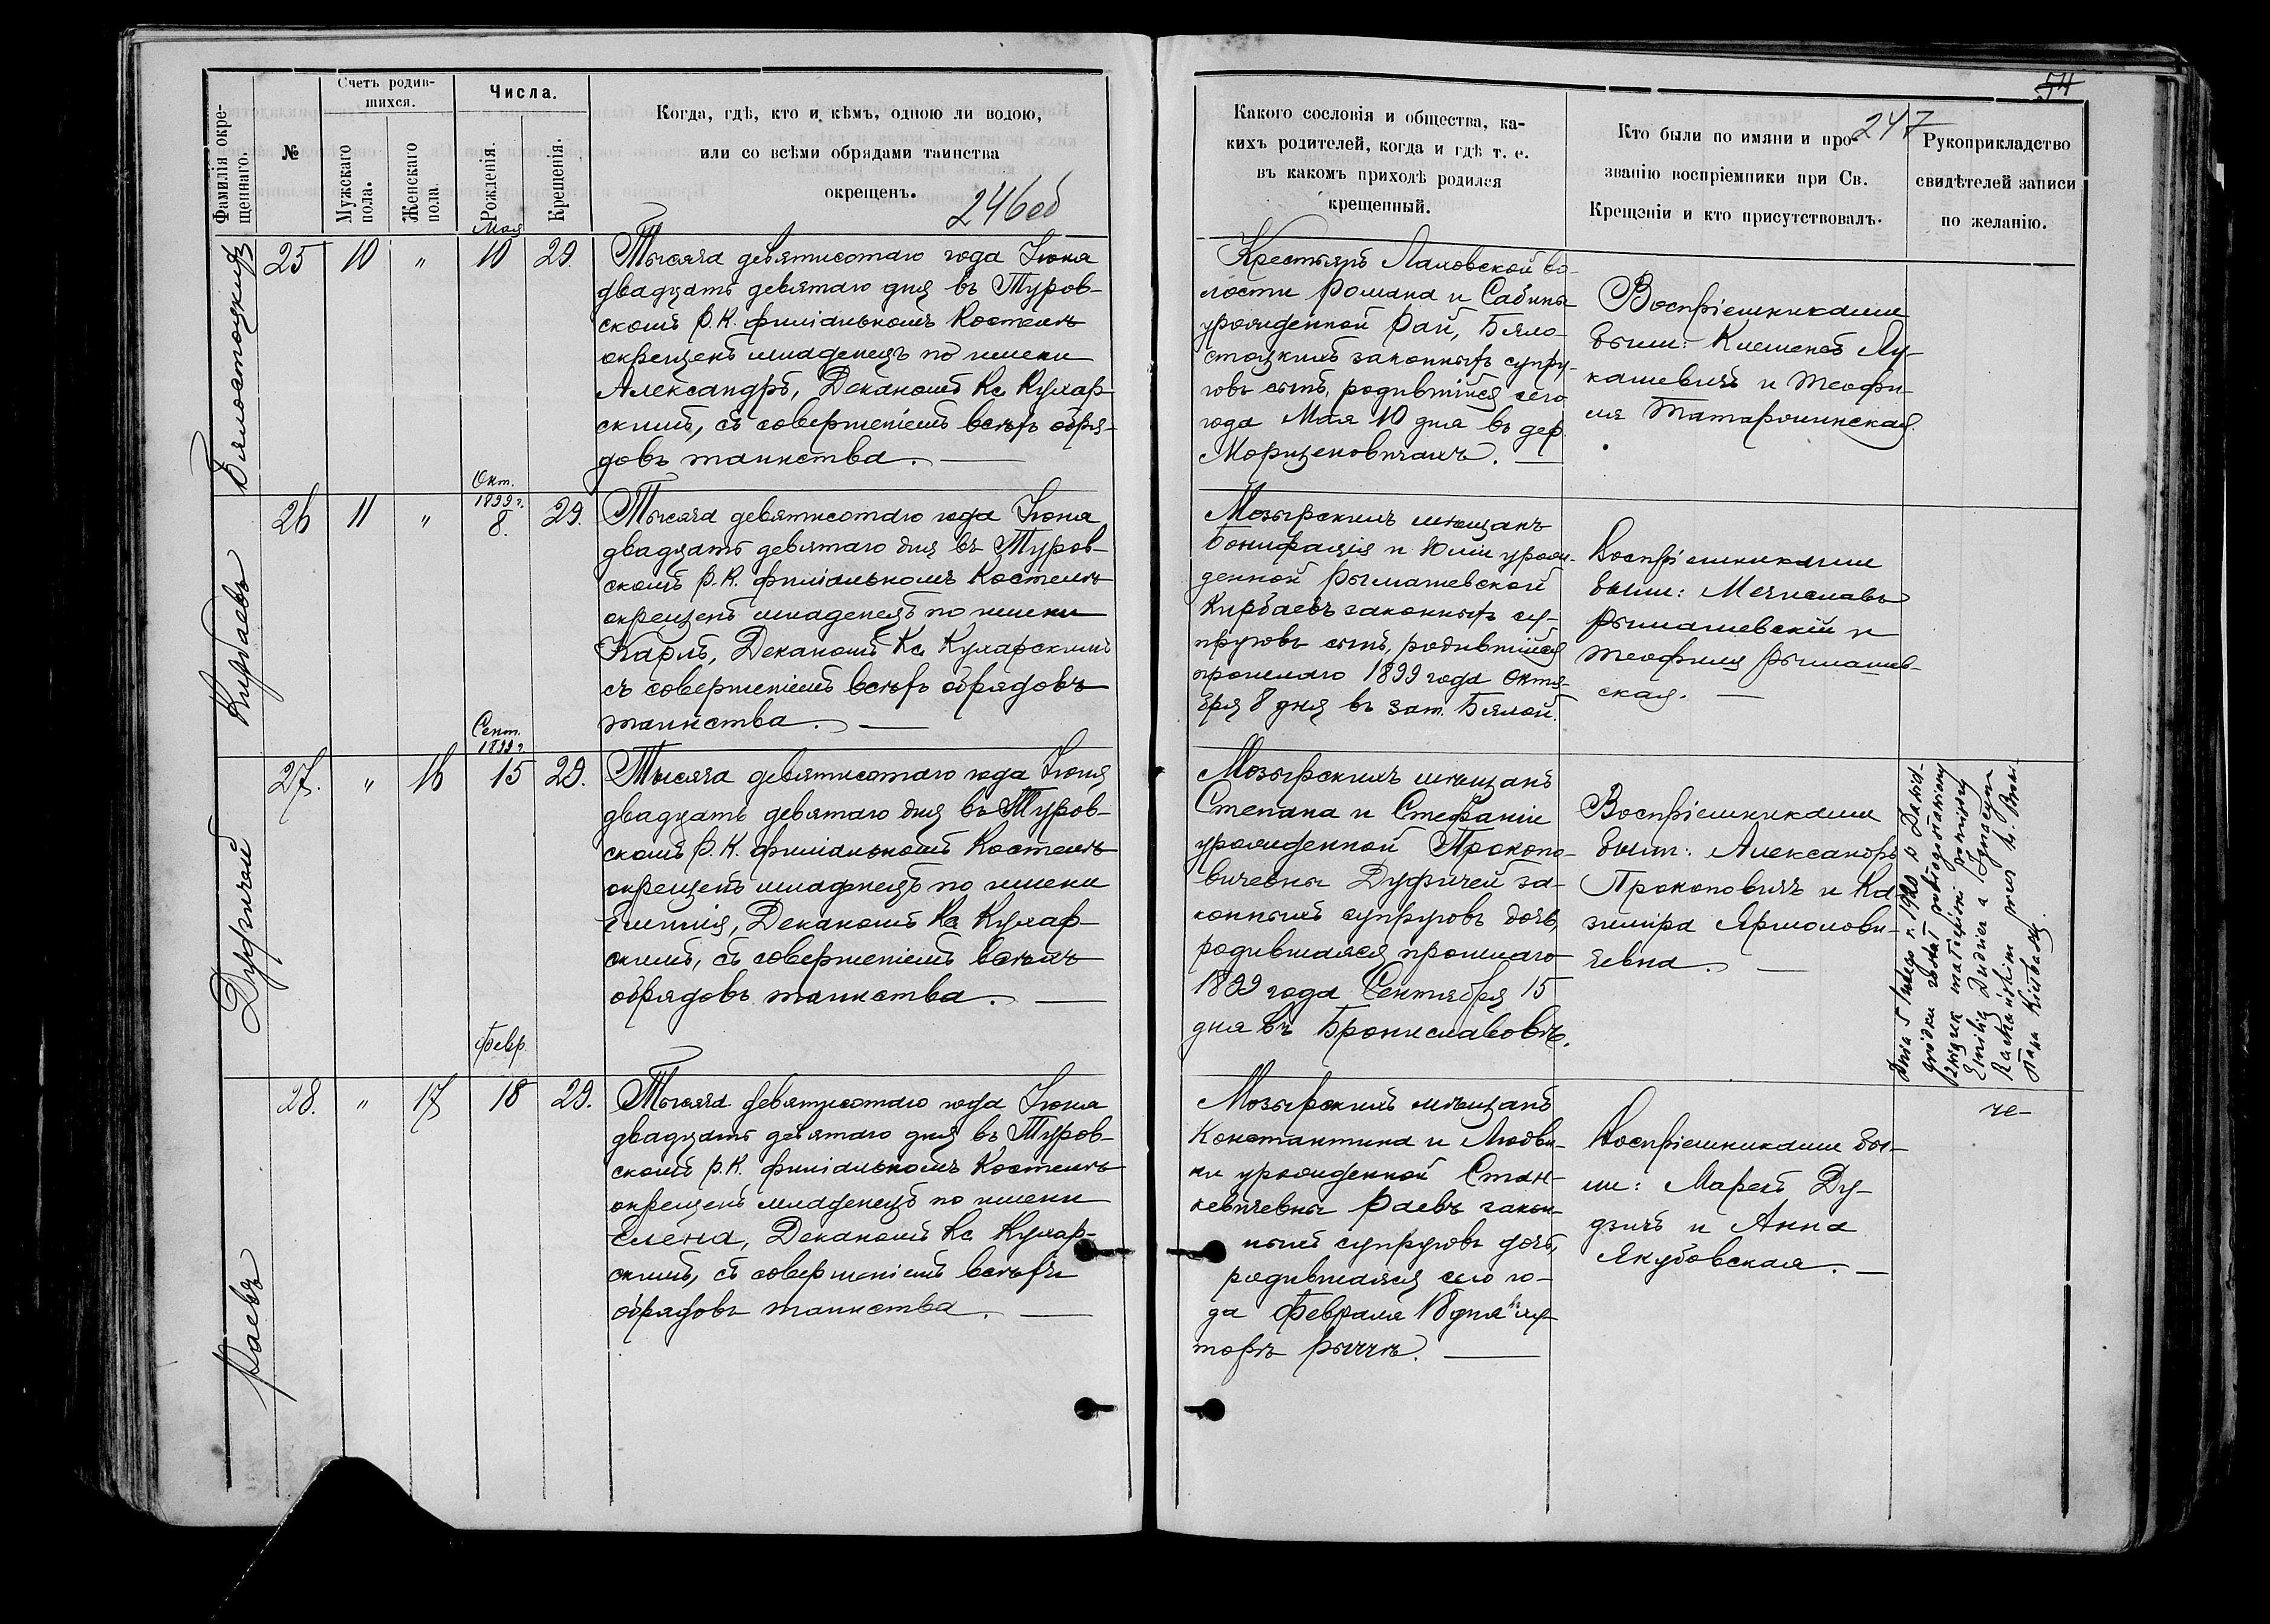 Фамилія окре-
щеннаго.
№
Счетъ родив-
шихся.
Мужскаго
пола.
Женскаго
пола.
Числа.
Рожденія.
Крещенія.
Когда, гдѣ, кто и кѣмъ, одною ли водою,
или со всѣми обрядами таинства
окрещенъ.
246об
Бялостоцкихъ
25
10
"
Мая
10
29.
Тысяча девятисотаго года Іюня
двадцать девятаго дня въ Туров-
скомъ Р.К. филіальномъ Костелѣ
окрещенъ младенецъ по имени
Александръ, Деканомъ Кс. Кухар-
скимъ, съ совершеніемъ всѣхъ обря-
довъ таинства.
Кирбаевъ
26
11
"
Окт.
1899 г.
8.
29.
Тысяча девятисотаго года Іюня
двадцать девятаго дня въ Туров-
скомъ Р.К. филіальномъ Костелѣ
окрещенъ младенецъ по имени
Карлъ, Деканомъ Кс. Кухарскимъ
съ совершеніемъ всѣхъ обрядовъ
таинства.
27.
"
16
Сент.
1899 г.
15
29.
Тысяча девятисотаго года Іюня
двадцать девятаго дня въ Туров-
скомъ Р.К. филіальномъ Костелѣ
окрещенъ младенецъ по имени
Емилія, Деканомъ Кс. Кухар-
скимъ, съ совершеніемъ всѣхъ
обрядовъ таинства.
Раевъ
28.
"
17
Февр.
18
29.
Тысяча девятисотаго года Іюня
двадцать девятаго дня въ Туров-
скомъ Р.К. филіальномъ Костелѣ
окрещенъ младенецъ по имени
Елена, Деканомъ Кс. Кухар-
скимъ, съ совершеніемъ всѣхъ
обрядовъ таинства.
54
247
Какого сословія и общества, ка-
кихъ родителей, когда и гдѣ т. е.
въ какомъ приходѣ родился
крещенный.
Кто были по имяни и про-
званію воспріемники при Св.
Крещеніи и кто присутствовалъ.
Рукоприкладство
свидѣтелей записи
по желанію.
Крестьянъ Лаховской во-
лости Романа и Сабины
урожденной Рай, Бяло-
стоцкихъ законныхъ супру-
говъ сынъ, родившійся сего
года Мая 10 дня въ дер.
Воспріемниками
были: Клеменсъ Лу-
кашевичъ и Теофи-
ля
Мозырскихъ мѣщанъ
Бонифація и Юліи урож-
денной Рымашевской
Кирбаевъ законныхъ су-
пруговъ сынъ, родившійся
прошлаго 1899 года Октя-
бря 8 дня въ заст. Бялой.
Воспріемниками
были: Мечиславъ
Рымашевскій и
Теофиля Рымашев-
ская.
Мозырскихъ мѣщанъ
Степана и Стефаніи
урожденной Прокопо-
вичевны за-
конныхъ супруговъ дочь,
родившаяся прошлаго
1899 года Сентября 15
дня въ Брониславовѣ.
Воспріемниками
были: Александръ
Прокоповичъ и Ка-
зиміра Ярмолови-
чевна.
Dnia 5 lutego r. 1920 w Dawid-
gródku został pobłogosławiony
związek małżeński pomiędzy
Emilią a Ignacym
przez ks.
Мозырскихъ мѣщанъ
Константина и Людви-
ки урожденной Стан-
кевичевны Раевъ закон-
ныхъ супруговъ дочь,
родившаяся сего го-
да Февраля 18 дня въ ху-
торѣ
Воспріемниками бы-
ли: Марекъ Ду-
дзичъ и Анна
Якубовская.